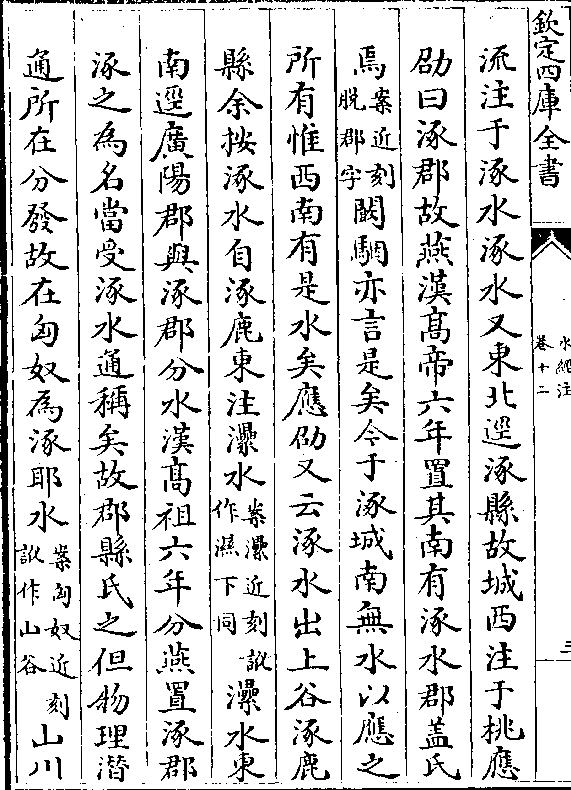 欽定四庫全書
水經注
卷十二
三
流注于涿水涿水又東北逕涿縣故城西注于桃應
劭曰涿郡故燕漢高帝六年置其南有涿水郡蓋氏
焉案近刻脱郡字闞駰亦言是矣今于涿城南無水以應之
所有惟西南有是水矣應劭又云涿水出上谷涿鹿
縣余按涿水自涿鹿東注灅水案灅近刻訛作濕下同灅水東
南逕廣陽郡與涿郡分水漢高祖六年分燕置涿郡
涿之為名當受涿水通稱矣故郡縣氏之但物理潛
通所在分發故在匈奴為涿耶水案匈奴近刻訛作山谷山川